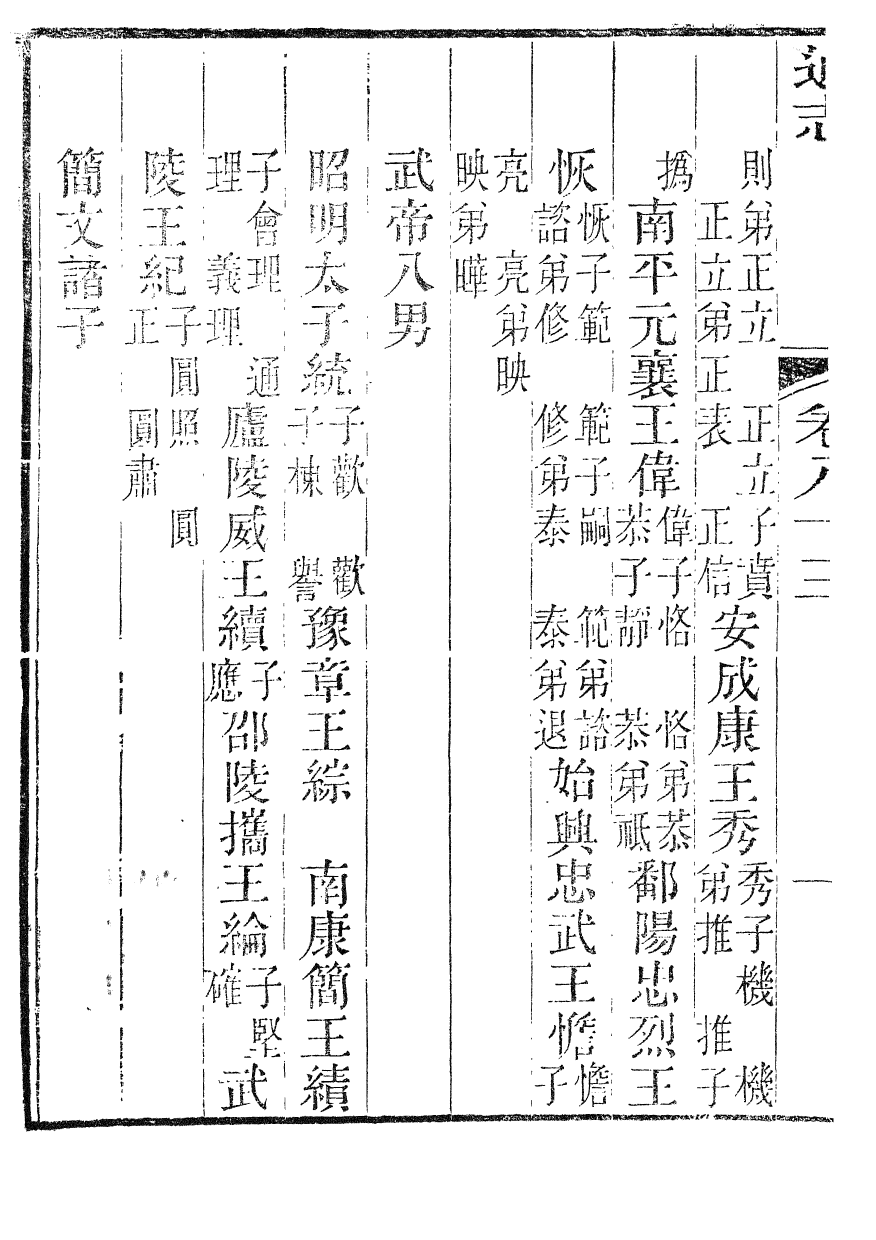 通志 卷八十三 一
則弟正立 正立子賁正立弟正表 正信安成康王秀秀子機 機弟推 推子
撝南平元襄王偉偉子恪 恪弟恭恭子靜 恭弟祗鄱陽忠烈王
恢恢子範 範子嗣 範弟諮諮弟修 修弟泰 泰弟退始興忠武王憺憺子
亮 亮弟映映弟曄
武帝八男
昭明太子統子歡 歡子棟 譽豫章王綜 南康簡王績
子會理 通理 義理廬陵威王續子應邵陵攜王綸子堅確武
陵王紀子圓照 圓正 圓肅
簡文諸子